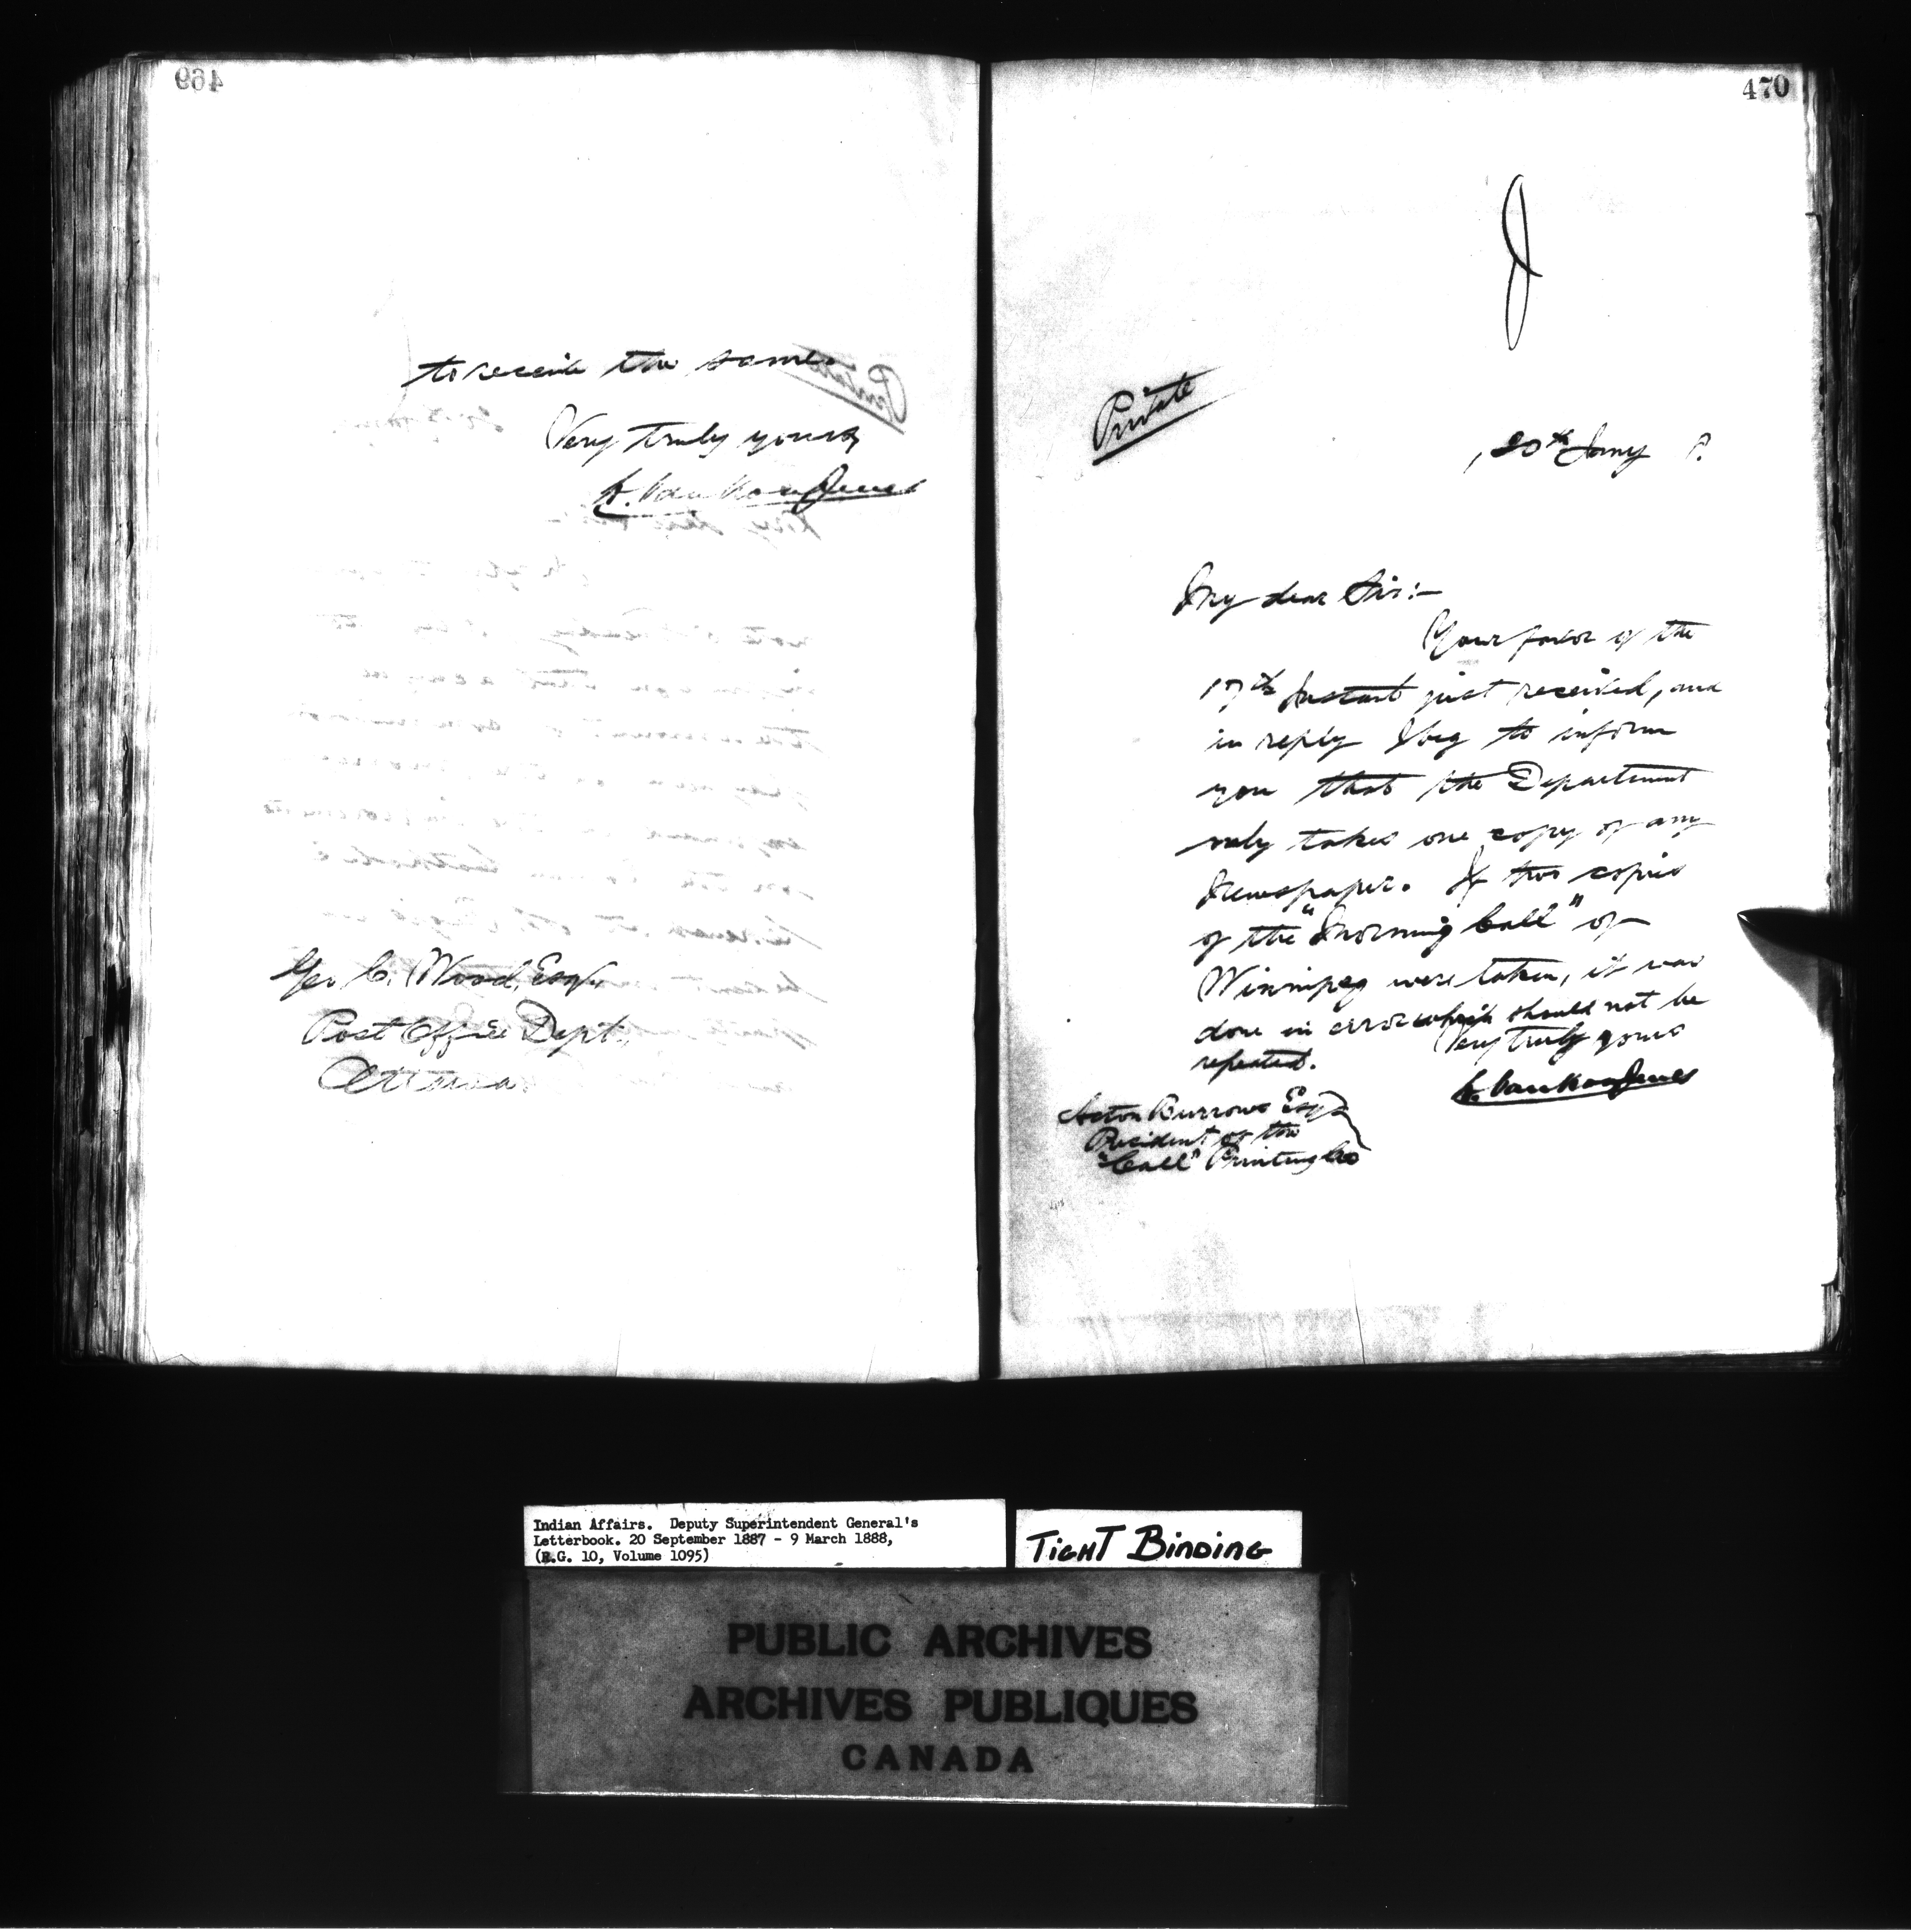 469
to receive the same.
Very truly yours
L. VanKoughnet
Geo C. Wood, Esq.
Post Office Dept.,
Ottawa.
470
J
Private
20th Jany 8.
My dear Sir:-
Your favor of the
17th Instant just received, and
in reply I beg to inform
you that the Department
only takes one copy of any
Newspaper. If two copies
of the "Morning Call" of
Winnipeg were taken, it was
done in error which should not be
repeated.
Very truly yours
L. VanKoughnet
Acton Burrows Esq
President of the
"Call" Printing Co
Indian Affairs. Deputy Superintendent General's
Letterbook. 20 September 1887 - 9 March 1888,
(R.G. 10, Volume 1095)
TIGHT BINDING
PUBLIC ARCHIVES
ARCHIVES PUBLIQUES
CANADA